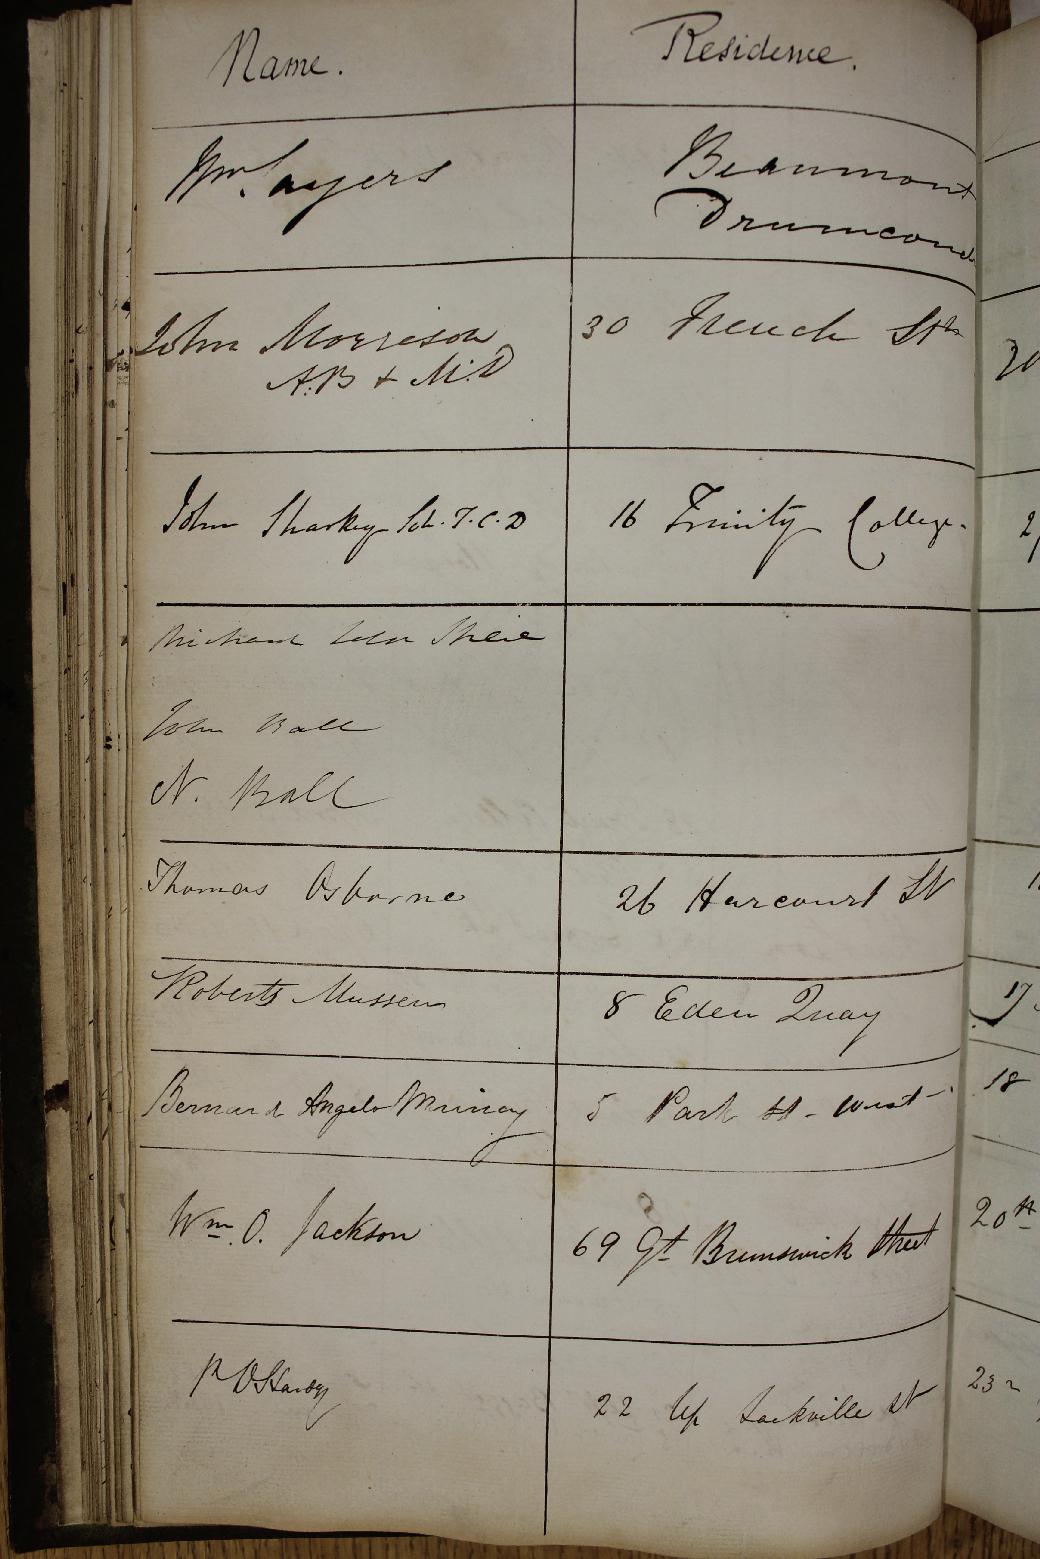 Name. Residence.
Wm. Sayers Beaumont
Drumcond
John Morrison 30 French St
A.B + M.D
John Sharkey Sch. T.C.D 16 Trinity College.
Richard Lalor Sheil
John Ball
N. Ball
Thomas Osborne 26 Harcourt St
Roberts Mussen 8 Eden Quay
17
Bernard Angelo Murray 5 Park St. West
18
Wm. O. Jackson 69 Gt Brunswick Street
20th
P D Hardy 22 Up Sackville St
23